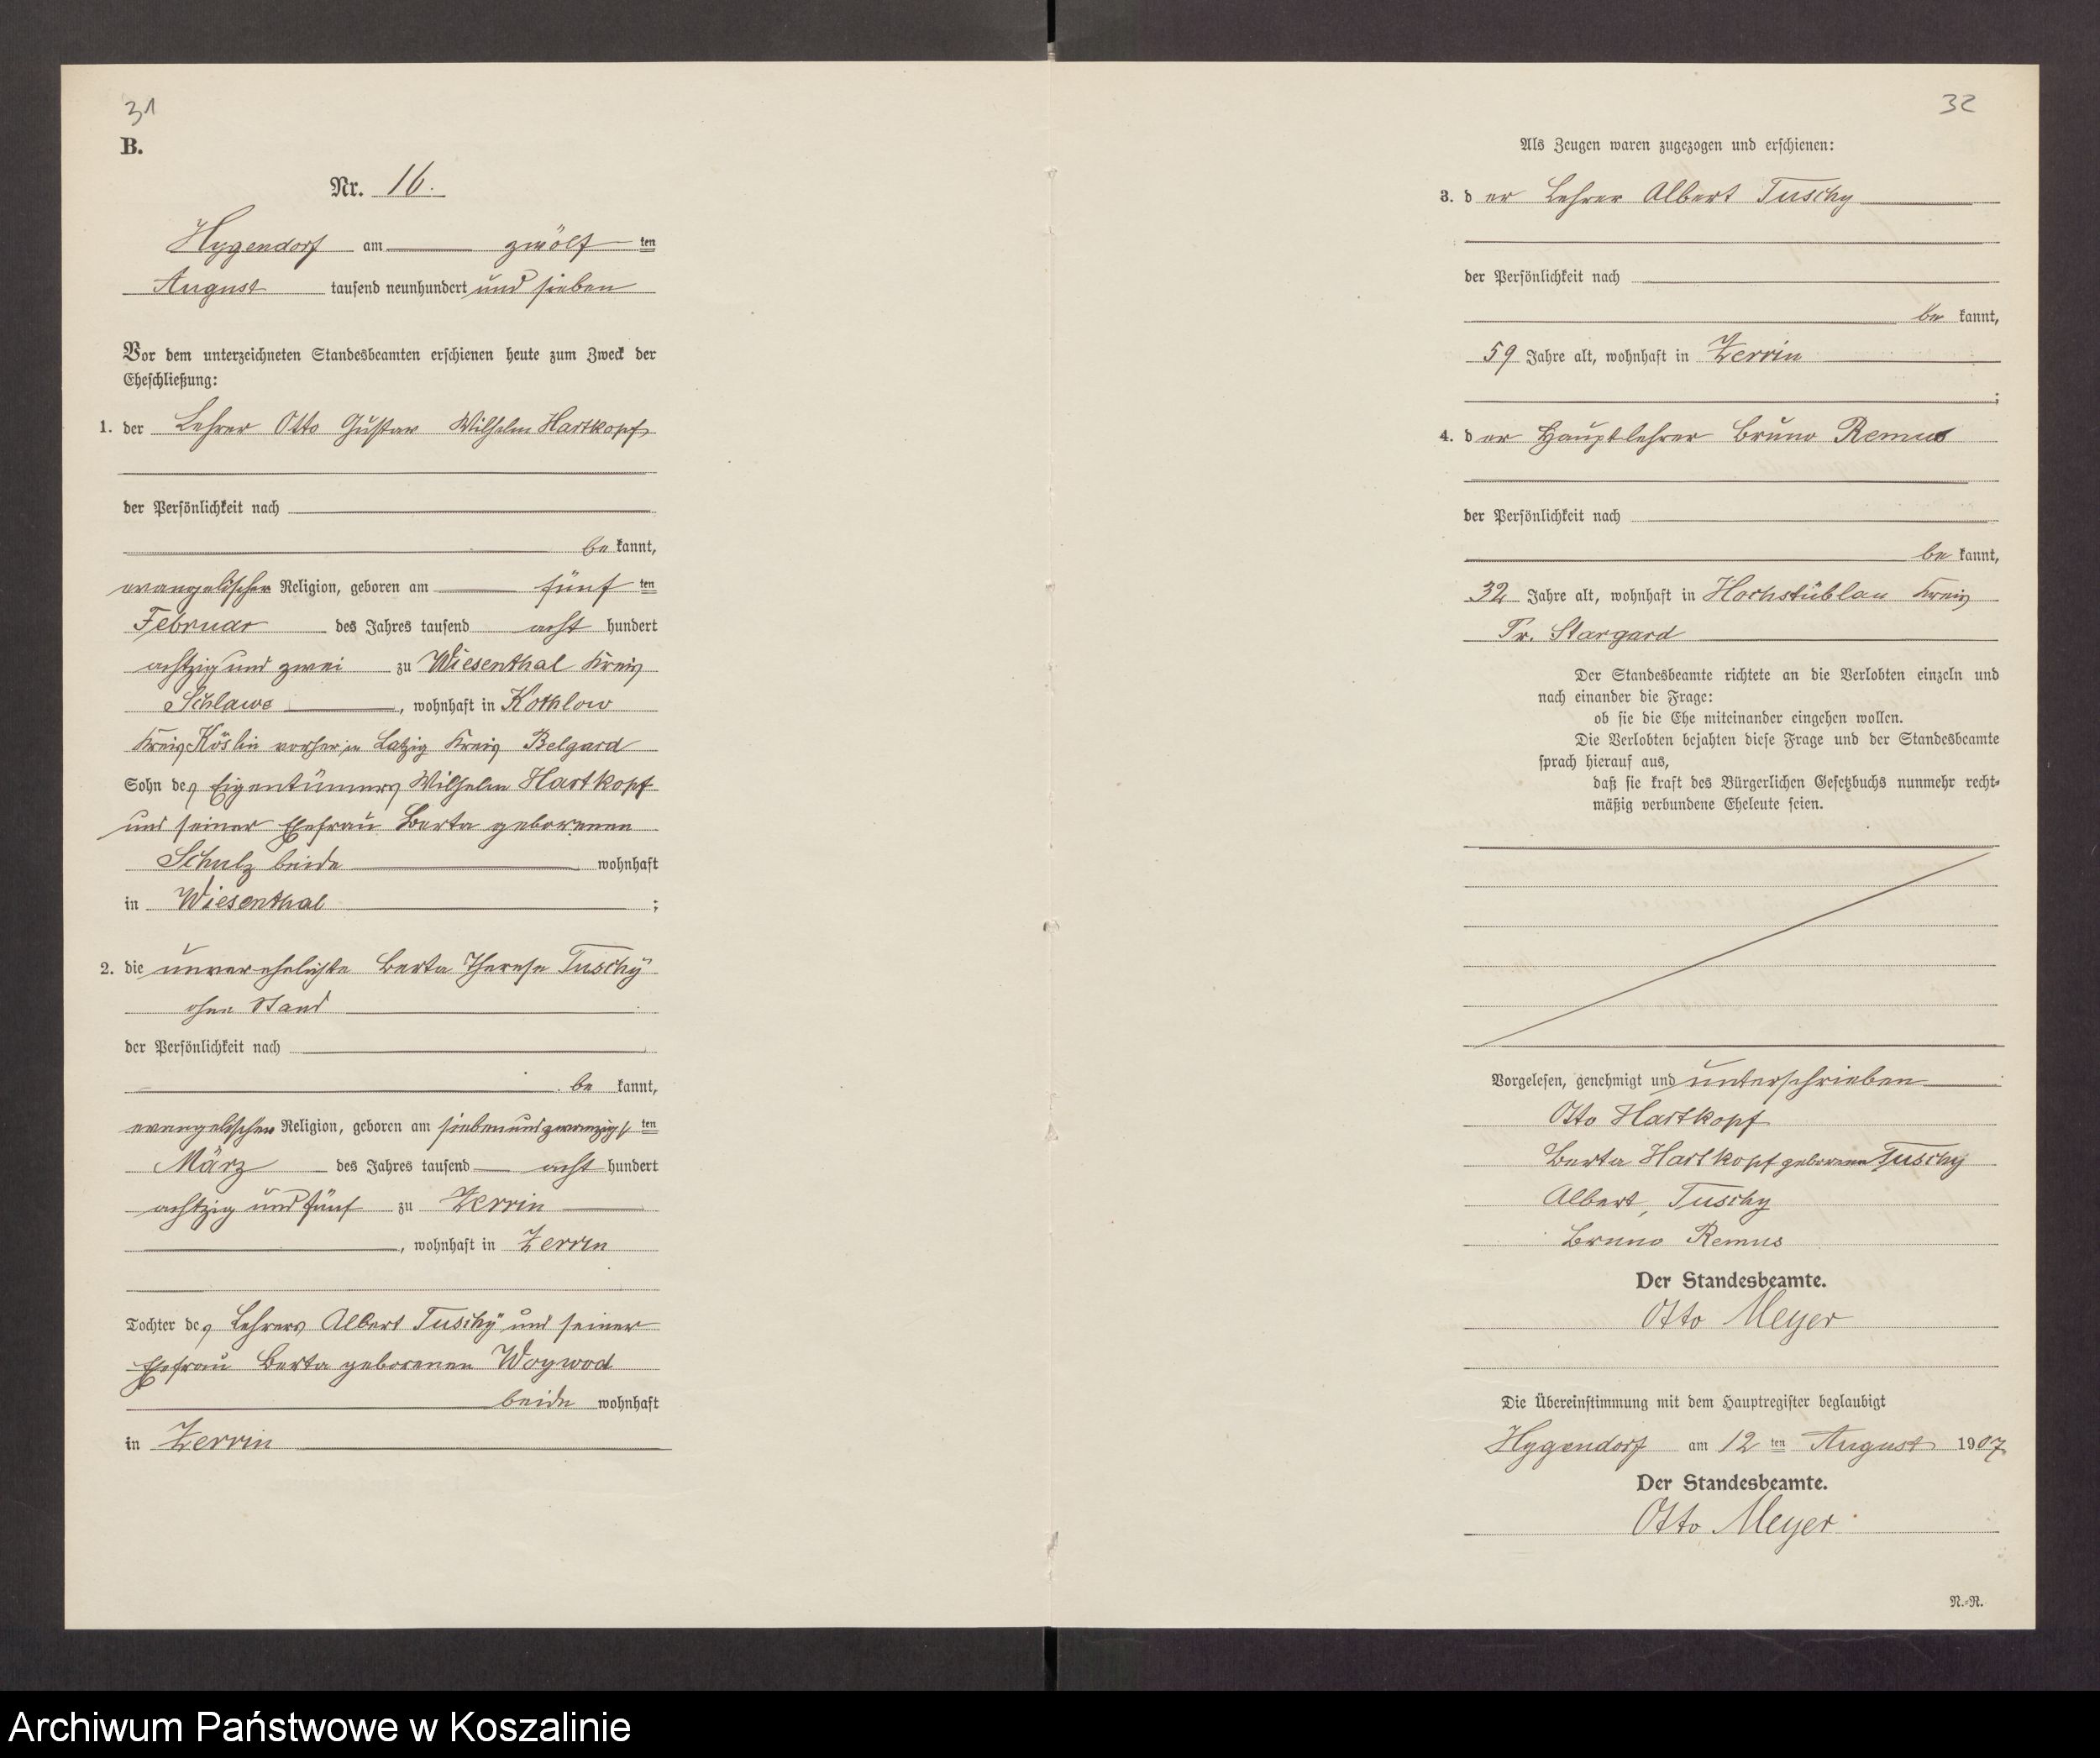 31
B.
Nr. 16.
Hygendorf am zwölf ten
August tausend neunhundert und sieben
Vor dem unterzeichneten Standesbeamten erschienen heute zum Zweck der
Eheschließung:
1. der Lehrer Otto Gustav Wilhelm Hartkopf
der Persönlichkeit nach
be kannt,
evangelischer Religion, geboren am fünf ten
Februar des Jahres tausend acht hundert
achtzig und zwei zu Wiesenthal Kreis
Schlawe, wohnhaft in Kothlow
Kreis Köslin vorher in Latzig Kreis Belgard
Sohn des Eigentümers Wilhelm Hartkopf
und seiner Ehefrau Berta geborenen
Schulz beide wohnhaft
in Wiesenthal ;
2. die unverehelichte Berta Therese Tuschy
ohne Stand
der Persönlichkeit nach
be kannt,
evangelischer Religion, geboren am siebenundzwanzigs ten
März des Jahres tausend acht hundert
achtzig und fünf zu Zerrin
, wohnhaft in Zerrin
Tochter des Lehrers Albert Tuschy und seiner
Ehefrau Berta geborenen Woywod
beide wohnhaft
in Zerrin
32
Als Zeugen waren zugezogen und erschienen:
3. d er Lehrer Albert Tuschy
der Persönlichkeit nach
be kannt,
59 Jahre alt, wohnhaft in Zerrin
;
4. d er Hauptlehrer Bruno Remus
der Persönlichkeit nach
be kannt,
32 Jahre alt, wohnhaft in Hochstüblau Kreis
Pr. Stargard
Der Standesbeamte richtete an die Verlobten einzeln und
nach einander die Frage:
ob sie die Ehe miteinander eingehen wollen.
Die Verlobten bejahten diese Frage und der Standesbeamte
sprach hierauf aus,
daß sie kraft des Bürgerlichen Gesetzbuchs nunmehr recht-
mäßig verbundene Eheleute seien.
Vorgelesen, genehmigt und unterschrieben
Otto Hartkopf
Berta Hartkopf geborene Tuschy
Albert Tuschy
Bruno Remus
Der Standesbeamte.
Otto Meyer
Die Übereinstimmung mit dem Hauptregister beglaubigt
Hygendorf am 12 ten August 1907.
Der Standesbeamte.
Otto Meyer
N.-R.
Archiwum Państwowe w Koszalinie